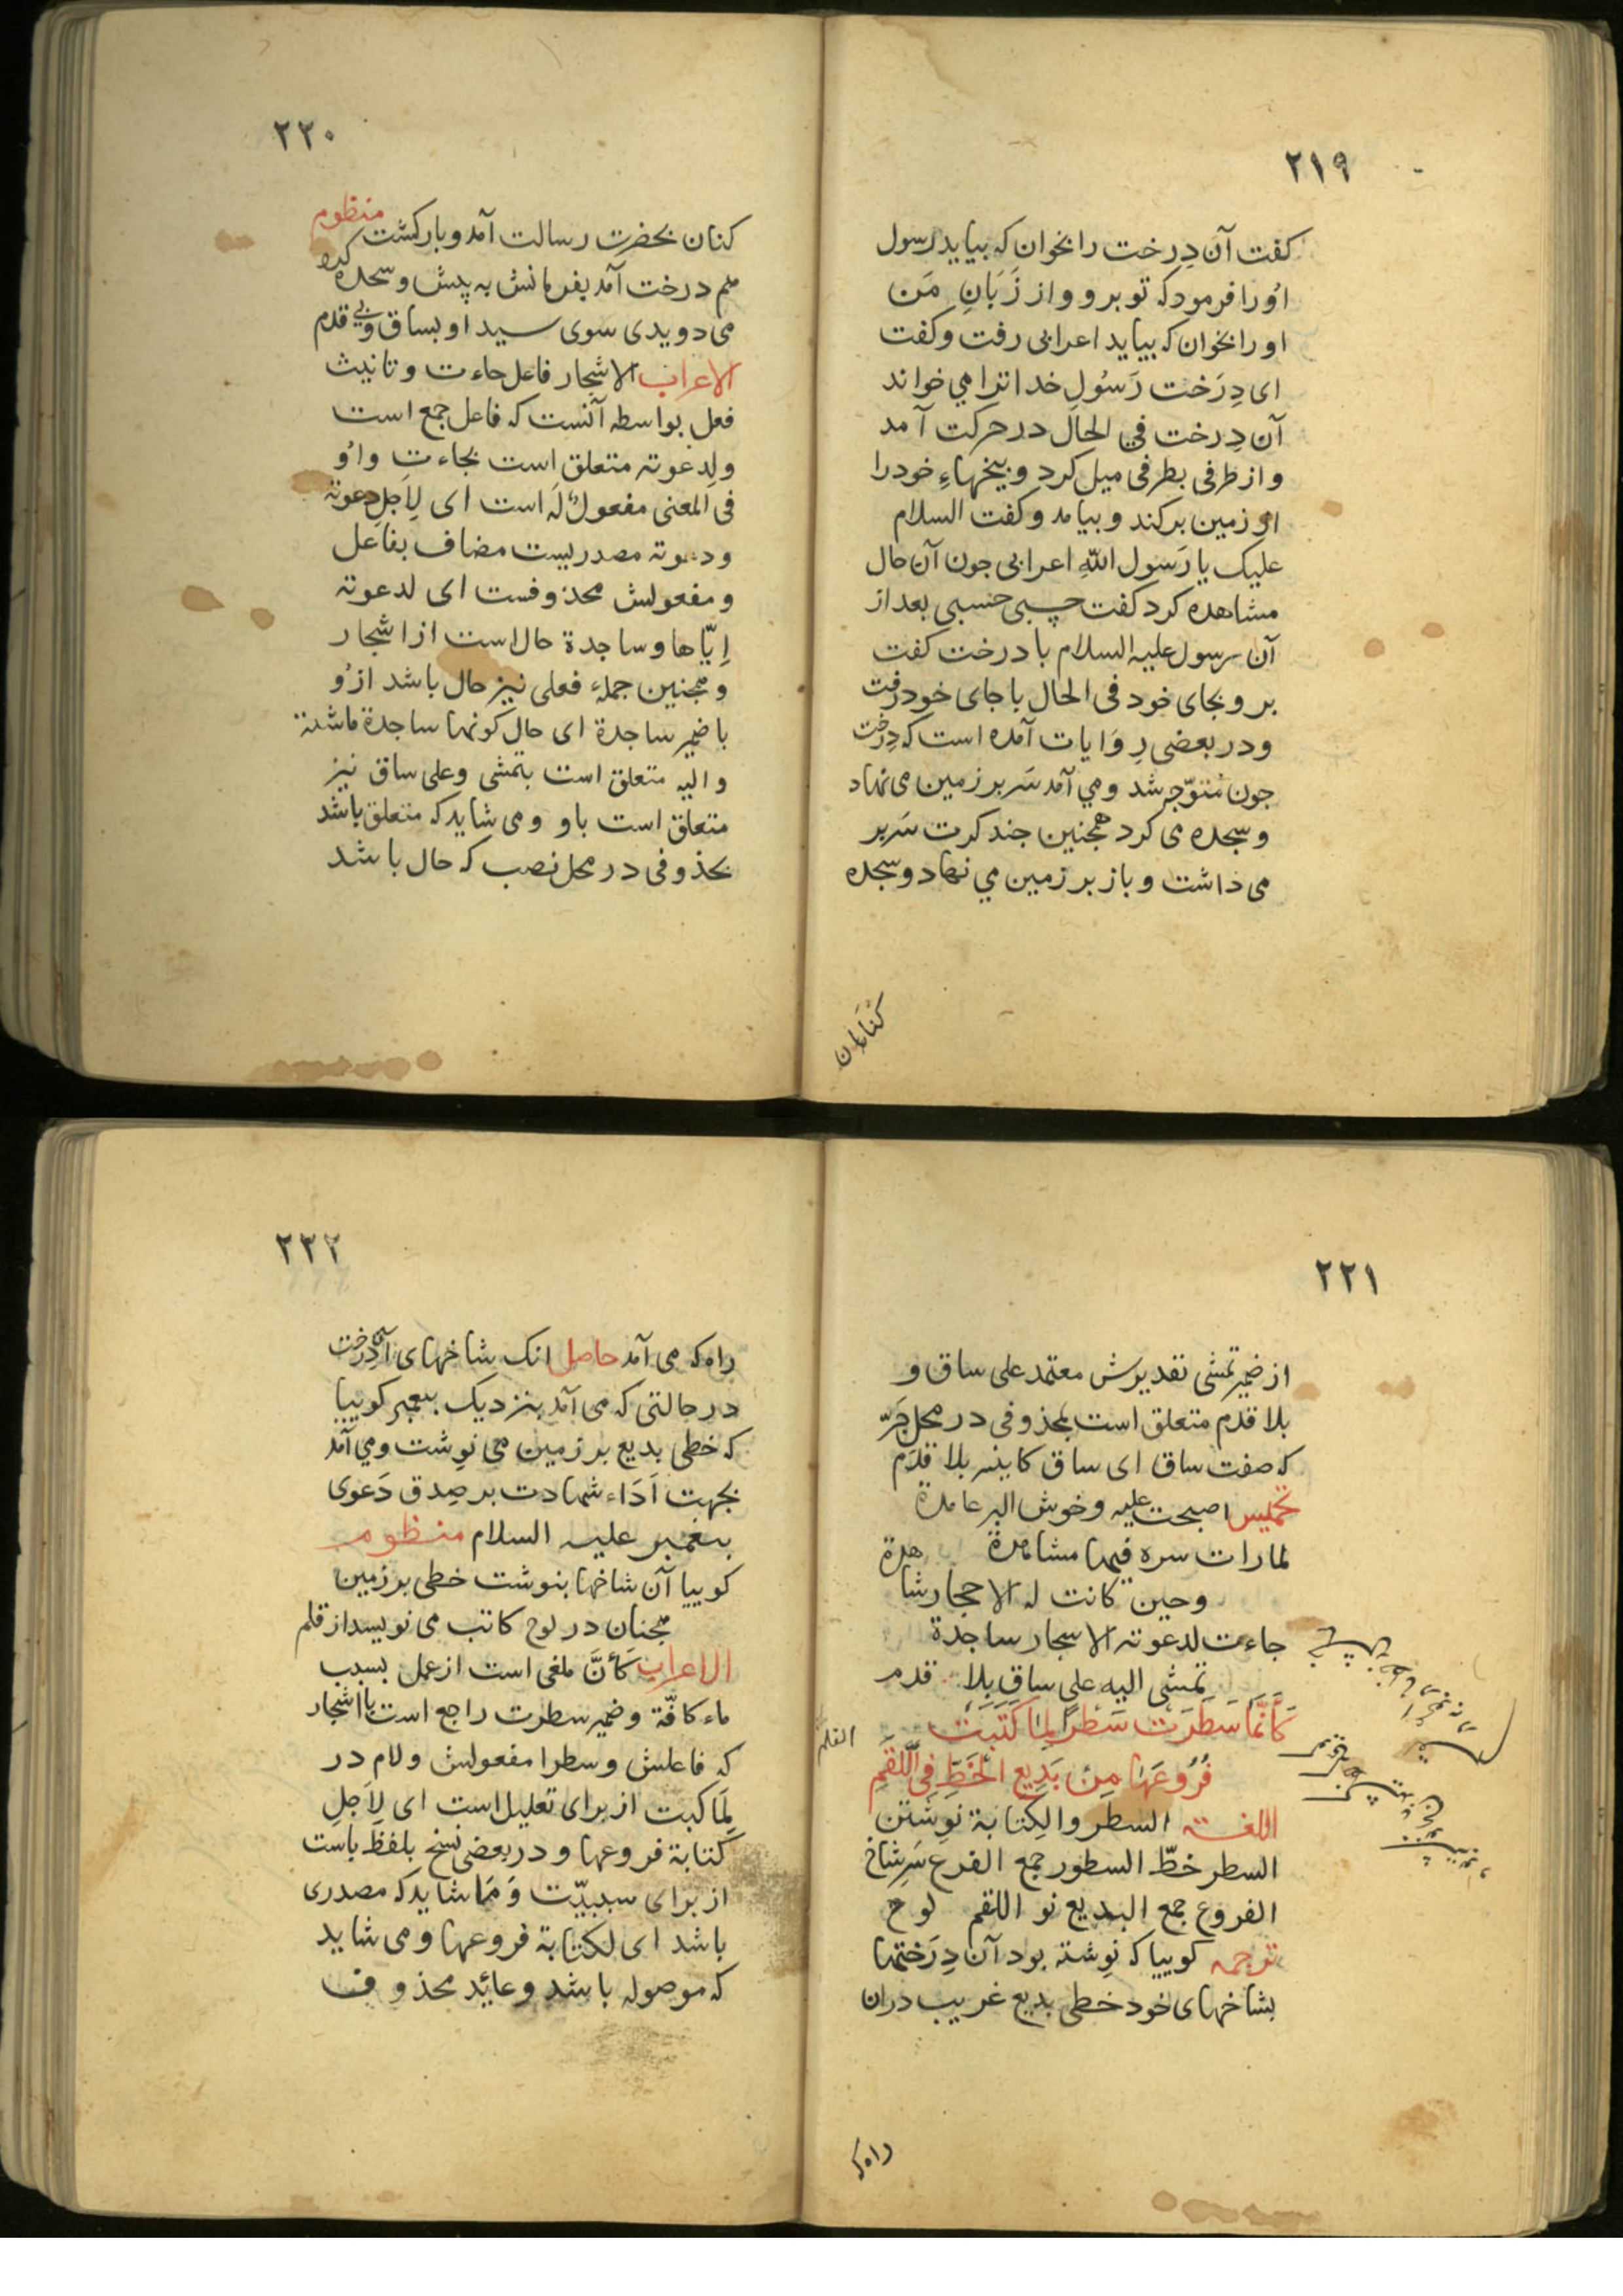 ٢١٩
كفت آن دِرخت را بخوان كه بيايد رسول
اُورا فرمود كه تو برو و از زَبَانِ مَن
اورا بخوان كه بيايد اعرابى رفت و كفت
اى دِرَخت رَسُولِ خدا ترا مي خواند
آن دِرخت في الحال در حركت آمد
و از طرفى بطرفى ميل كرد و بيخهاءِ خود را
از زمين بركند و بيامد و كفت السلام
عليك يا رَسول اللّهِ اعرابى جون آن حال
مشاهده كرد كفت حسبى حسبى بعد از
آن رسول عليه السلام با درخت كفت
برو بجاى خود فى الحال با جاى خود رفت
و در بعضى رِوَايات آمده است كه دِرَخت
جون مُتوّجه شد و مي آمد سَر بر زمين مى نهاد
و سجده مى كرد همجنين جند كرت سَر بر
مى داشت و باز بر زمين مي نهاد و سجده
كنان
٢٢٠
كنان بحضرت رسالت آمد و باز كشت منظوم
هم درخت آمد بفرمانش به پيش و سجده كرد
مى دويدى سوى سيد او بساق و بي قدم
الاعراب الاشجار فاعل جاءت و تانيث
فعل بواسطه آنست كه فاعل جمع است
و لدعوته متعلق است بجاءت و اُو
فى المعنى مفعولٌ لَه است اى لِاَجلِ دعوته
و دعوته مصدريست مضاف بفاعل
و مفعولش محذوفست اى لدعوته
اِيّاها و ساجدة حال است از اشجار
و همجنين جملهٔ فعلى نيز حال باشد ازُو
با ضمير ساجدة اى حال كونها ساجدة ماشية
و اليه متعلق است بتمشى و على ساق نيز
متعلق است باو و مى شايد كه متعلق باشد
بمحذوفى در محل نصب كه حال باشد
٢٢١
از ضمير تمشى تقديرش معتمد على ساق و
بلا قدم متعلق است بمحذوفى در محل جَرّ
كه صفت ساق اى ساق كاينه بلا قدَم
تخميس اصبحت عليه وخوش البر عامدة
لما رات سره فيها مشاهدة
وحين كانت له الاحجار شاهدة
جاءت لدعوته الاشجار ساجدة
تمشى اليه على ساقٍ بِلا قدم
كَأَنَّمَا سَطَرَتْ سَطْرًا لِمَا كَتَبَتْ
فُرُوعُهَا مِنْ بَدِيعِ الْخَطِّ فِي اللَّقَمِ
القلم
اللغته السطر و الكِتابة نوِشتن
السطر خطّ السطور جمع الفرع سَرشاخ
الفروع جمع البديع نو اللقم لوح
ترجمه كوييا كه نوِشته بود آن دِرَختها
بشاخهاى خود خطى بديع غريب دران
راه كه
٢٢٢
راه كه مى آمد حاصل انك شاخهاى آن دِرخت
در حالتى كه مى آمد بنزديك پيغمبر كوييا
كه خطى بديع بر زمين مى نوِشت و مي آمد
بجهت اَدَاء شهادت بر صِدق دَعوى
پيغمبر عليه السلام منظوم
كوييا آن شاخها بنوشت خطى بر زمين
همجنان در لوح كاتب مى نويسد از قلم
الاعراب كَأَنَّ ملغى است از عمل بسبب
ماء كافّة و ضمير سطرت راجع است با اشجار
كه فاعلش و سطرا مفعولش و لام در
لِمَا كتبت از براى تعليل است اى لِاَجلِ
كتابة فروعها و در بعضى نسخ بلفظ باست
از براى سببيّت وَ مَا شايد كه مصدرى
باشد اى لكتابة فروعها و مى شايد
كه موصوله باشد و عائد محذوف